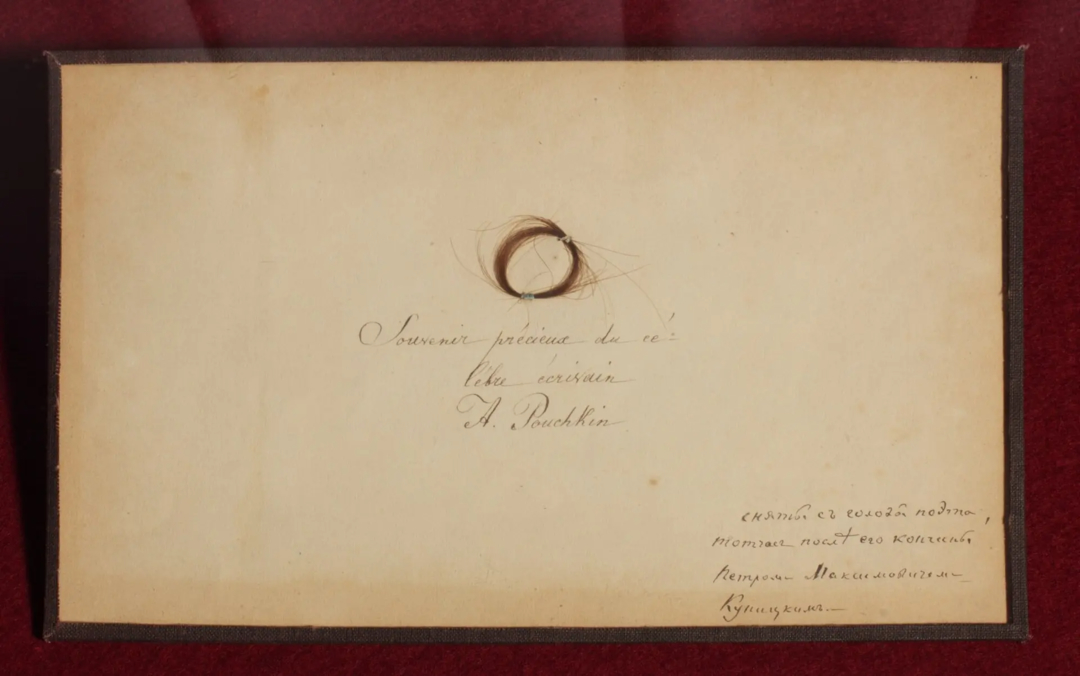 Souvenir précieux du cé-
lèbre écrivain
A. Pouchkin
сняты съ головы поэта,
тотчасъ послѣ его кончины
Петромъ Максимовичемъ
Куницкимъ.